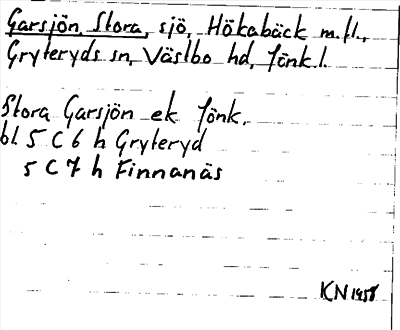 Garsjön, Stora, sjö, Hökabäck m.fl.,
Gryteryds sn, Västbo hd, Jönk.l.
Stora Garsjön ek Jönk.
bl. 5 C 6 h Gryteryd
5 C 7 h Finnanäs
KN 1958